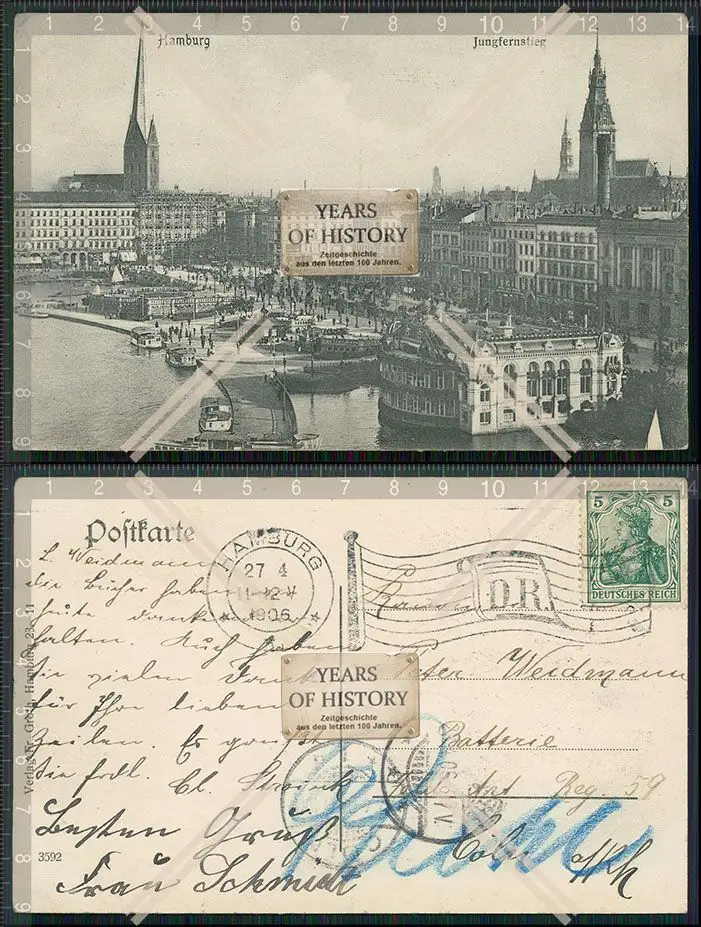 1 2 3 4 5 6 7 8 9 10 11 12 13 14
Hamburg
Jungfernstieg
YEARS
OF HISTORY
Zeitgeschichte
aus den letzten 100 Jahren.
2
3
4
5
6
7
8
9
1 2 3 4 5 6 7 8 9 10 11 12 13 14
Postkarte
HAMBURG
27 4
11-12 V
1906
D.R.
5 5
DEUTSCHES REICH
L. Weidmann
die Bücher haben
heute dankend
halten. Auch haben
Sie vielen Dank
für Ihre lieben
Zeilen. Es grüßt
Sie frdl.
Besten Gruß
Frau Schmidt
Peter Weidmann
Batterie
Art. Reg. 59
Cöln a/Rh
YEARS
OF HISTORY
Zeitgeschichte
aus den letzten 100 Jahren.
Hamburg
3592
1
2
3
4
5
6
7
8
9